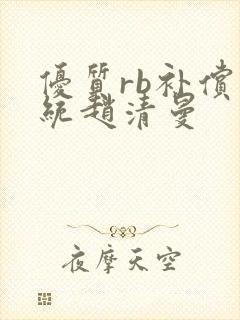 優質rb补償
統趙清曼
夜摩天空